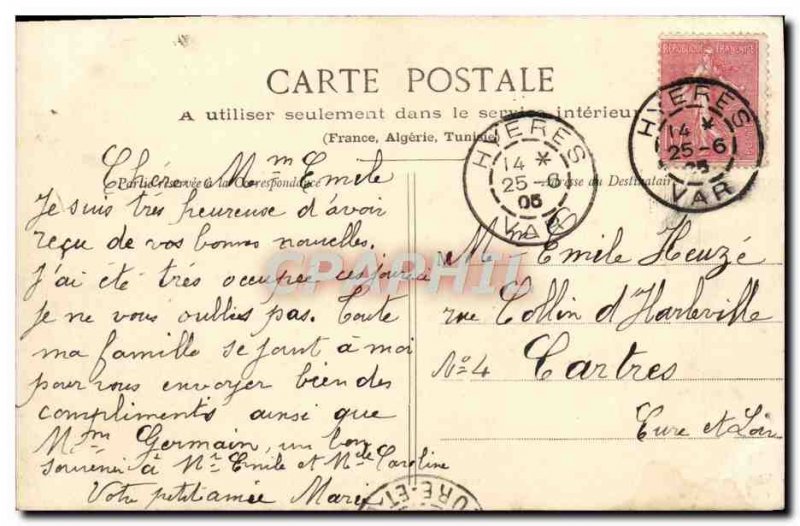 REPUBLIQUE FRANÇAISE
CARTE POSTALE
A utiliser seulement dans le service intérieur
(France, Algérie, Tunisie)
HYERES
14 *
25-6
05
VAR
HYERES
14 *
25-6
05
VAR
Partie réservée à la Correspondance
Adresse du Destinataire
Chère Mme Emile
Je suis très heureuse d'avoir
reçu de vos bonnes nouvelles.
J'ai été très occupée ces jours ci
je ne vous oublies pas. Toute
ma famille se joint à moi
pour vous envoyer bien des
compliments ainsi que
Mme Germain, un bon
souvenir à Mr Emile et Mlle Caroline
Votre petite amie Marie
Mme Emile Heuzé
rue Collin d'Harleville
No 4 Cartres
Eure et Loir
EURE-ET-
CPAPHIL